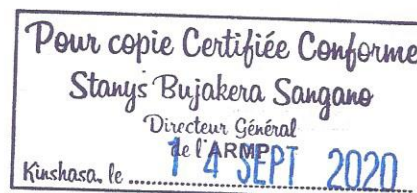 Pour copie Certifiée Conforme
Stanys Bujakera Sangano
Directeur Général
de l'ARMP
Kinshasa, le 14 SEPT 2020